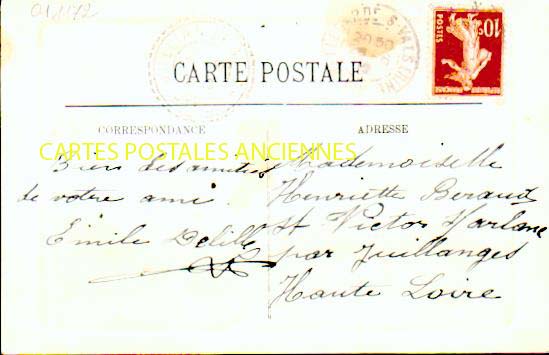 011172
CARTE POSTALE
POSTES
10c
CORRESPONDANCE
ADRESSE
CARTES POSTALES ANCIENNES
Bien des amitiés
de votre ami
Emile Delille
Mademoiselle
Henriette Beraud
St Victor Marlane
par Juillanges
Haute Loire